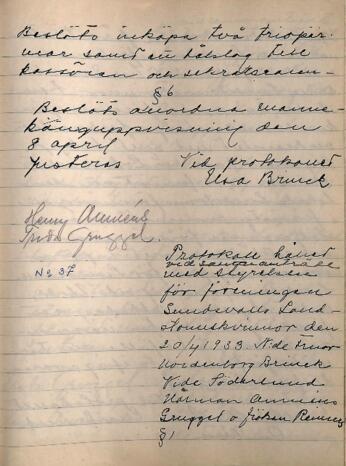 Beslöts inköpa två triopär-
mar samt ett hålslag till
kassören och sekreteraren
§ 6
Beslöts anordna manne-
känguppvisning den
8 april
Justeras Vid protokollet
Elsa Brinck
Henny
Frida Gruggel.
No 37
Protokoll hållet
vid sammanträde
med styrelsen
för föreningen
Sundsvalls Land-
stormskvinnor den
20/4 1933. N.de Fruar
Nordenborg Brinck
Vide Söderlund
Norman
Gruggel o fröken
§ 1